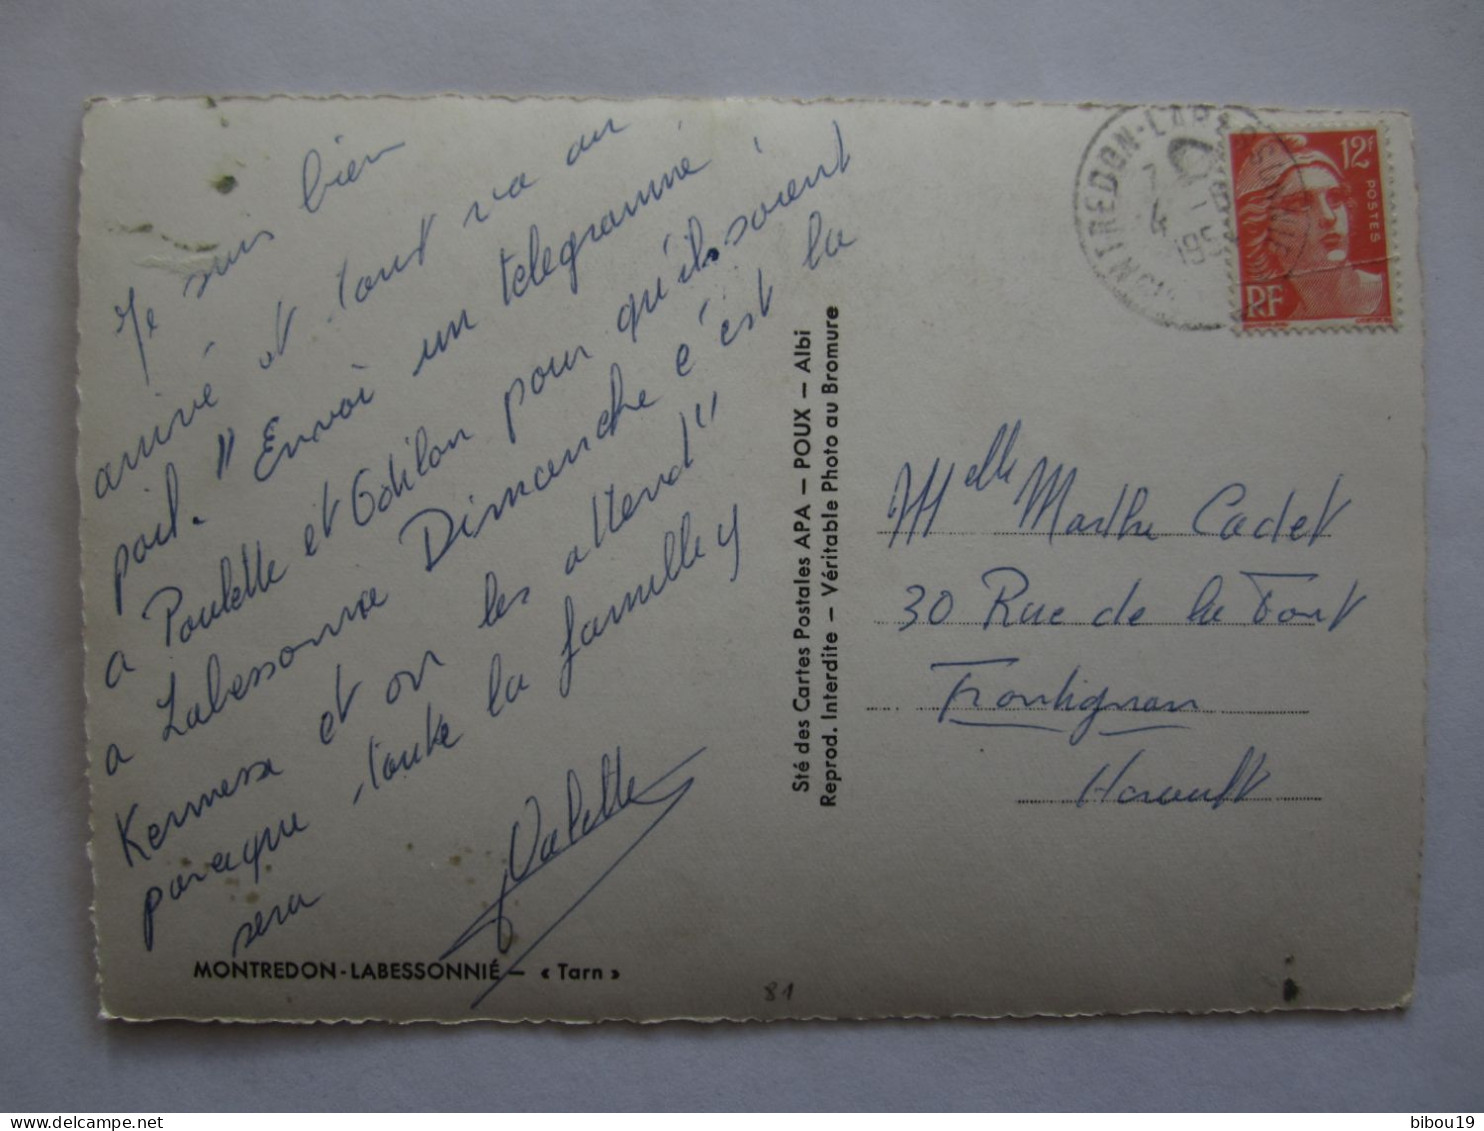 Je suis bien
arrivé et tout va au
poil. "Envoi un telegramme
a Paulette et Odilon pour qu'ils soient
a Labessonie Dimanche c'est la
Kermesse et on les attend"
parceque toute la famille y
sera
Valette
MONTREDON-LABESSONNIÉ — « Tarn »
81
Sté des Cartes Postales APA — POUX — Albi
Reprod. Interdite — Véritable Photo au Bromure
MONTREDON-LABESSONNIE
4
195
12F
POSTES
RF
Melle Marthe Cadet
30 Rue de la Font
Frontignan
Herault
bibou19